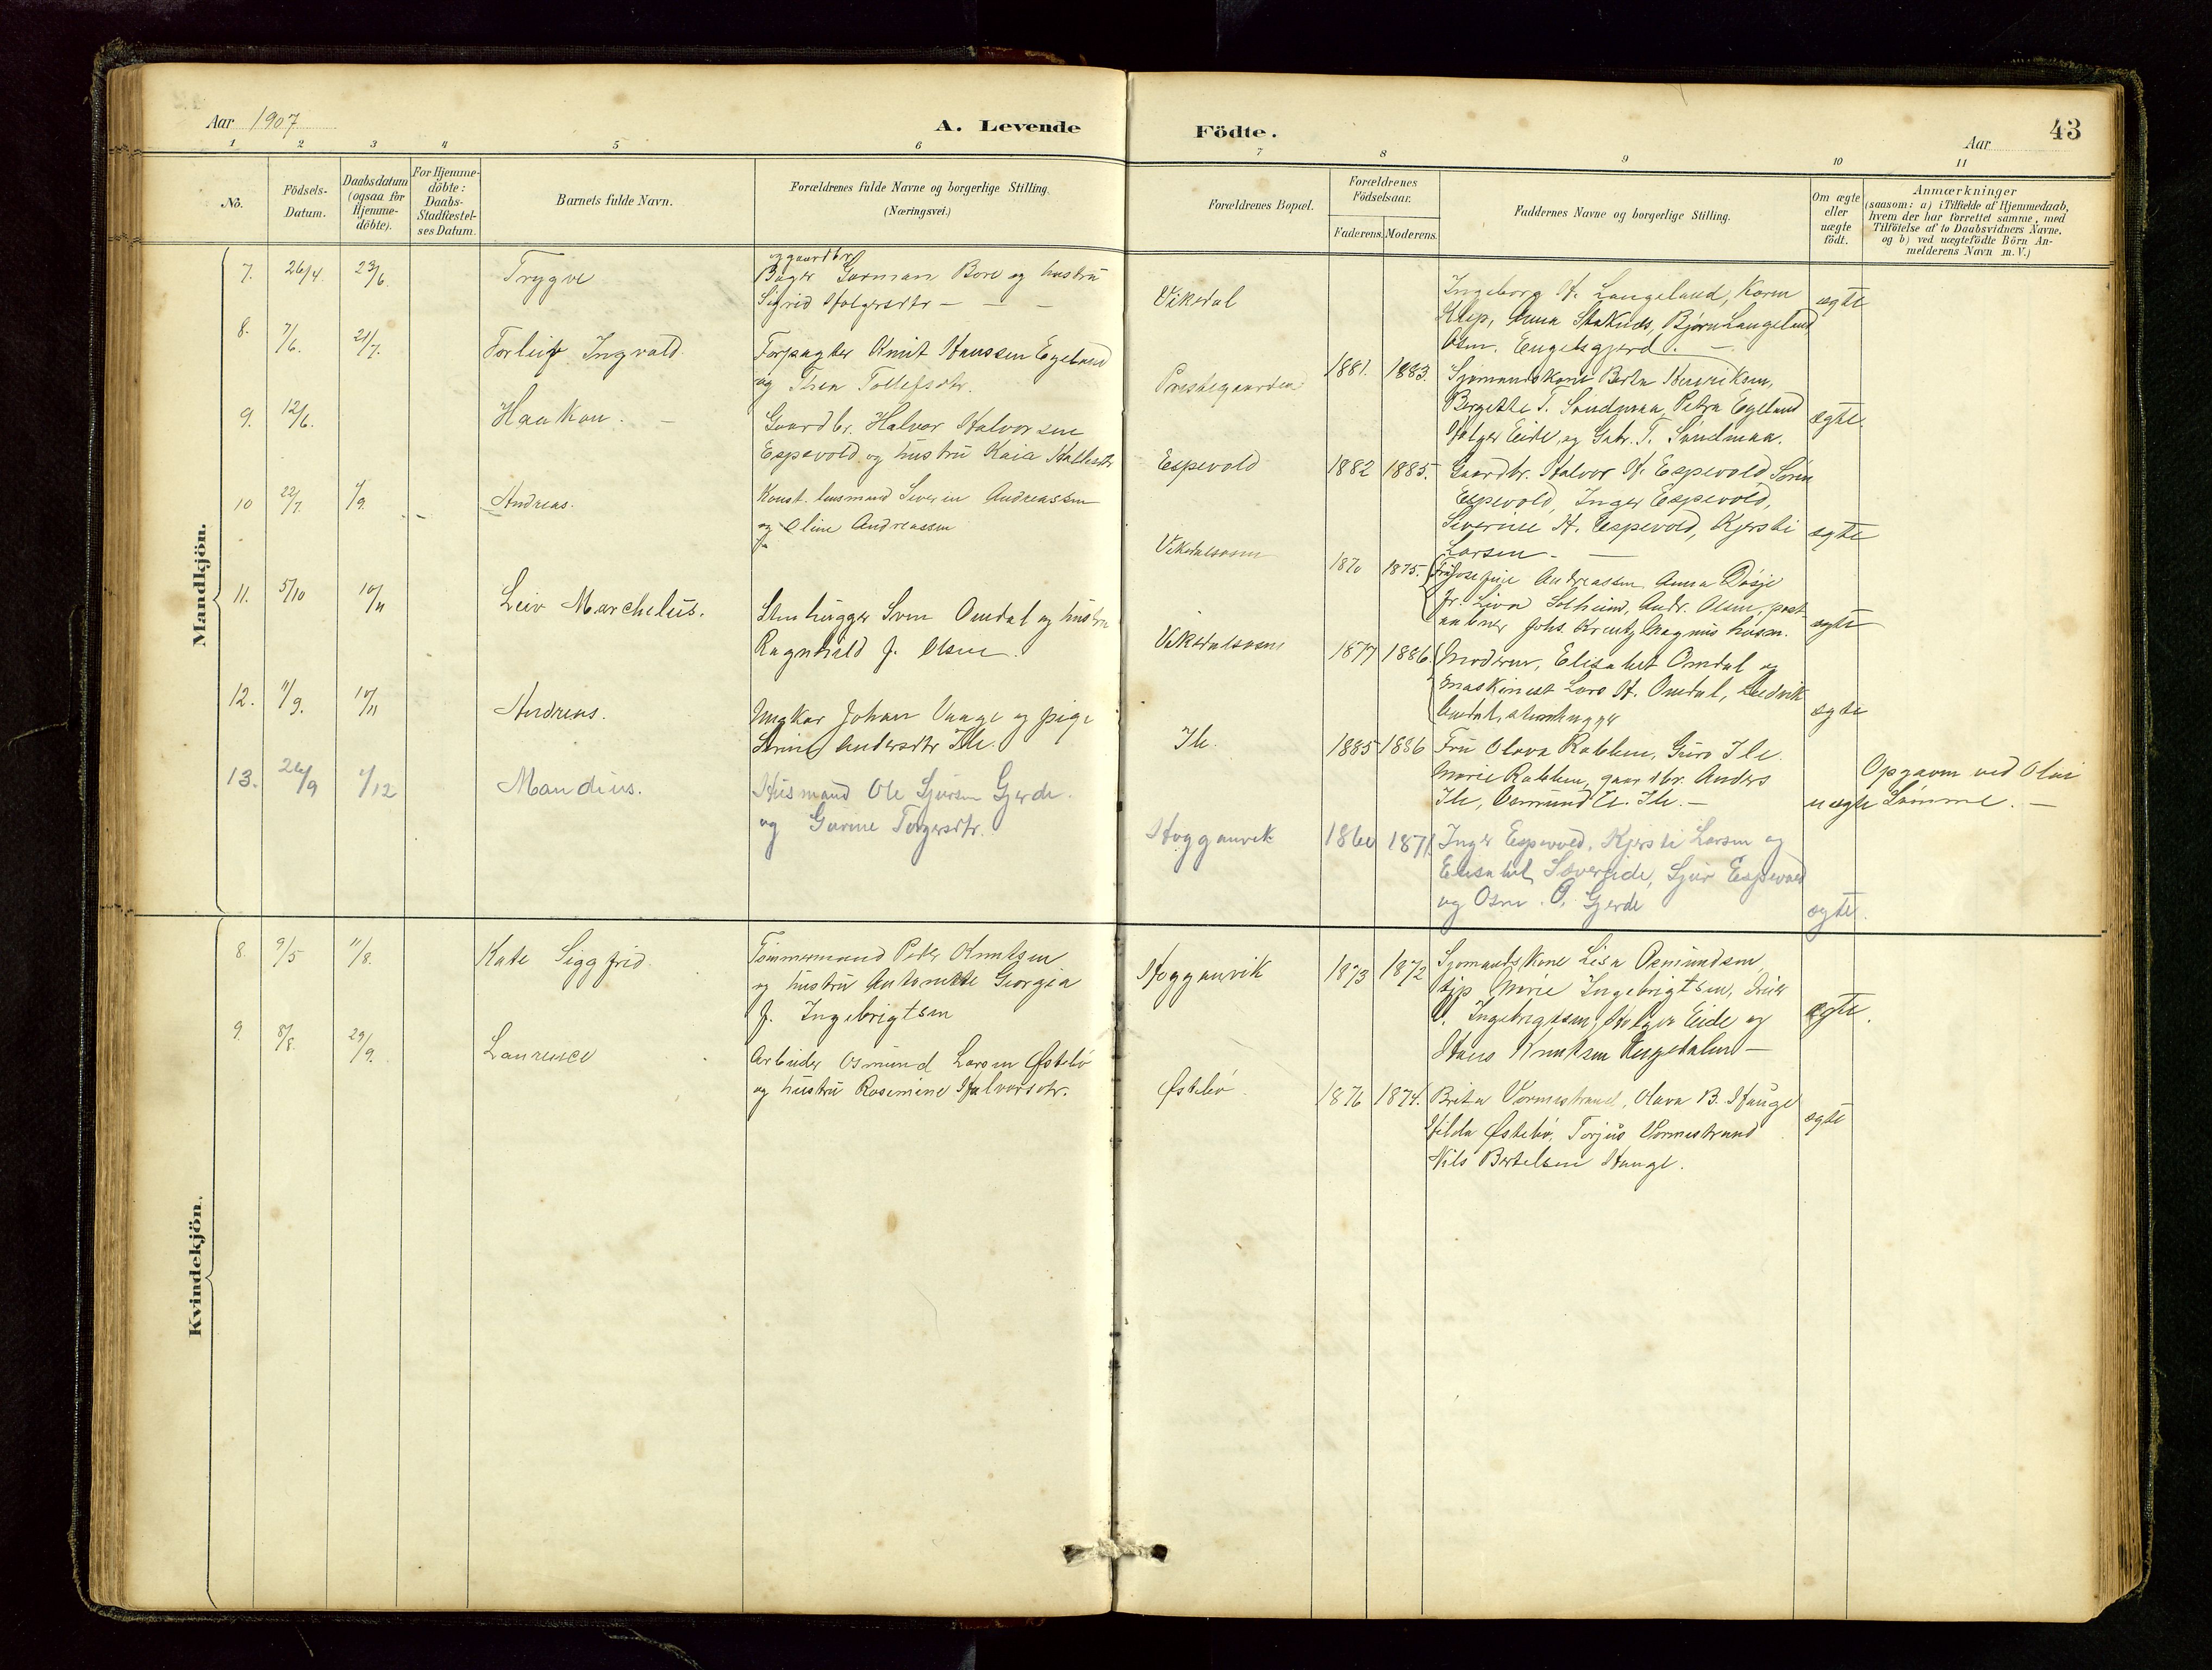 Aar 1907
A. Levende
Födte.
Aar
43
1 2 3 4 5 6 7 8 9 10 11
No.
Födsels-
Datum.
Daabsdatum
(ogsaa for
Hjemme-
döbte).
For Hjemme-
döbte:
Daabs-
Stadfæstel-
ses Datum.
Barnets fulde Navn.
Forældrenes fulde Navne og borgerlige Stilling.
(Næringsvei.)
Forældrenes Bopæl.
Forældrenes
Födselsaar.
Faderens. Moderens.
Faddernes Navne og borgerlige Stilling.
Om ægte
eller
uægte
födt.
Anmærkninger
(saasom: a) i Tilfælde af Hjemmedaab,
hvem der har forrettet samme, med
Tilföielse af to Daabsvidners Navne,
og b) ved uægtefödte Börn An-
melderens Navn m.V.)
Mandkjön.
7. 26/4. 23/6. Trygve
og gaardbr
Bager Gorman Bore og hustru
Sigrid Holgersdtr
Vikedal
Ingeborg H. Langeland, Karen
Klep, Anna Staknes, Bjørn Langeland
Osm. Engelsgjerd.
ægte
8. 7/6. 21/7. Torleif Ingvald
Forpagter Knut Hanssen Egeland
og Thea Tollefsdtr.
Prestegaarden
1881. 1883.
Sjømandskone Berta Henriksen,
Bergitte T. Sandmaa, Petra Egeland
Holger Eide, og Gabr. T. Sandmaa.
ægte.
9. 12/6. Haakon.
Gaardbr. Halvor Halvorsen
Espevold og hustru Kaia
Espevold
1882 1885.
Gaardbr. Halvor H. Espevold, Søren
Espevold, Inger Espevold,
Severine H. Espevold, Kjersti
Larsen
ægte
10 22/7. /9. Andreas.
Konst. lensmand Severin Andreassen
og Oline Andreassen
Vikedalsosen
1870 1875.
Fru Josefine Andreassen Anna Døsje
fr. Liva Solheim, Andr. Olsen, post-
aabner Johs. Kreutz, Magnus husm.
ægte
11. 5/10 10/11 Leiv Marchelius.
Stenhugger Sven Omdal og hustru
Ragnhild J. Olsen.
Vikedalsosen
1877 1886.
Moderen, Elisabet Omdal og
maskinist Lars H. Omdal, Ludvik
Omdal, stenhugger
ægte
12. 11/9. 10/11 Andreas.
Ungkar Johan Vaage og pige
Andersdtr Ile.
Ile.
1885 1886
Fru Olava Rabben, Guro Ile.
Marie Rabben, gaardbr. Anders
Ile, Osmund A. Ile.
uægte
Opgaven ved Olai
Sømme.
13. 26/9 1/12 Mandius.
Husmand Ole Sjursen Gjerde.
og Gurine Torgersdtr.
Hogganvik
1860 1871.
Inger Espevold, Kjersti Larsen og
Elisabet Søvereide, Sjur Espevold
og Osm. O. Gjerde
ægte.
Kvindekjön.
8. 9/5 11/8. Kate Siggfrid
Tømmermand Peder Knutsen
og hustru Antonette Georgia
J. Ingebrigtsen
Hogganvik
1873 1872
Sjomandskone Lisa Osmundsen,
Marie Ingebrigtsen,
Ingebrigtsen, Holger Eide og
Hans Knutsen
ægte.
9. 8/8. 29/9. Laurence
Arbeider Osmund Larsen Østebø
og hustru Rosemine Halvorsdtr.
Østebø
1876 1874.
Brita Vormestrand, Olava B. Hauge
Hilda Østebø, Torjus Vormestrand
Nils Bertelsen Hauge.
ægte